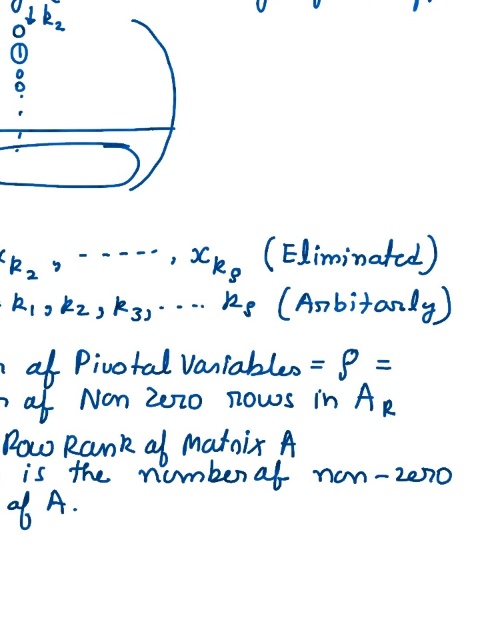 ↓ k₂
0
1
0
0
x_{k₂}, -----, x_{kρ} (Eliminated)
k₁, k₂, k₃, .... kρ (Arbitarly)
of Pivotal Variables = ρ =
of Non Zero rows in A_R
Row Rank of Matrix A
is the number of non-zero
of A.